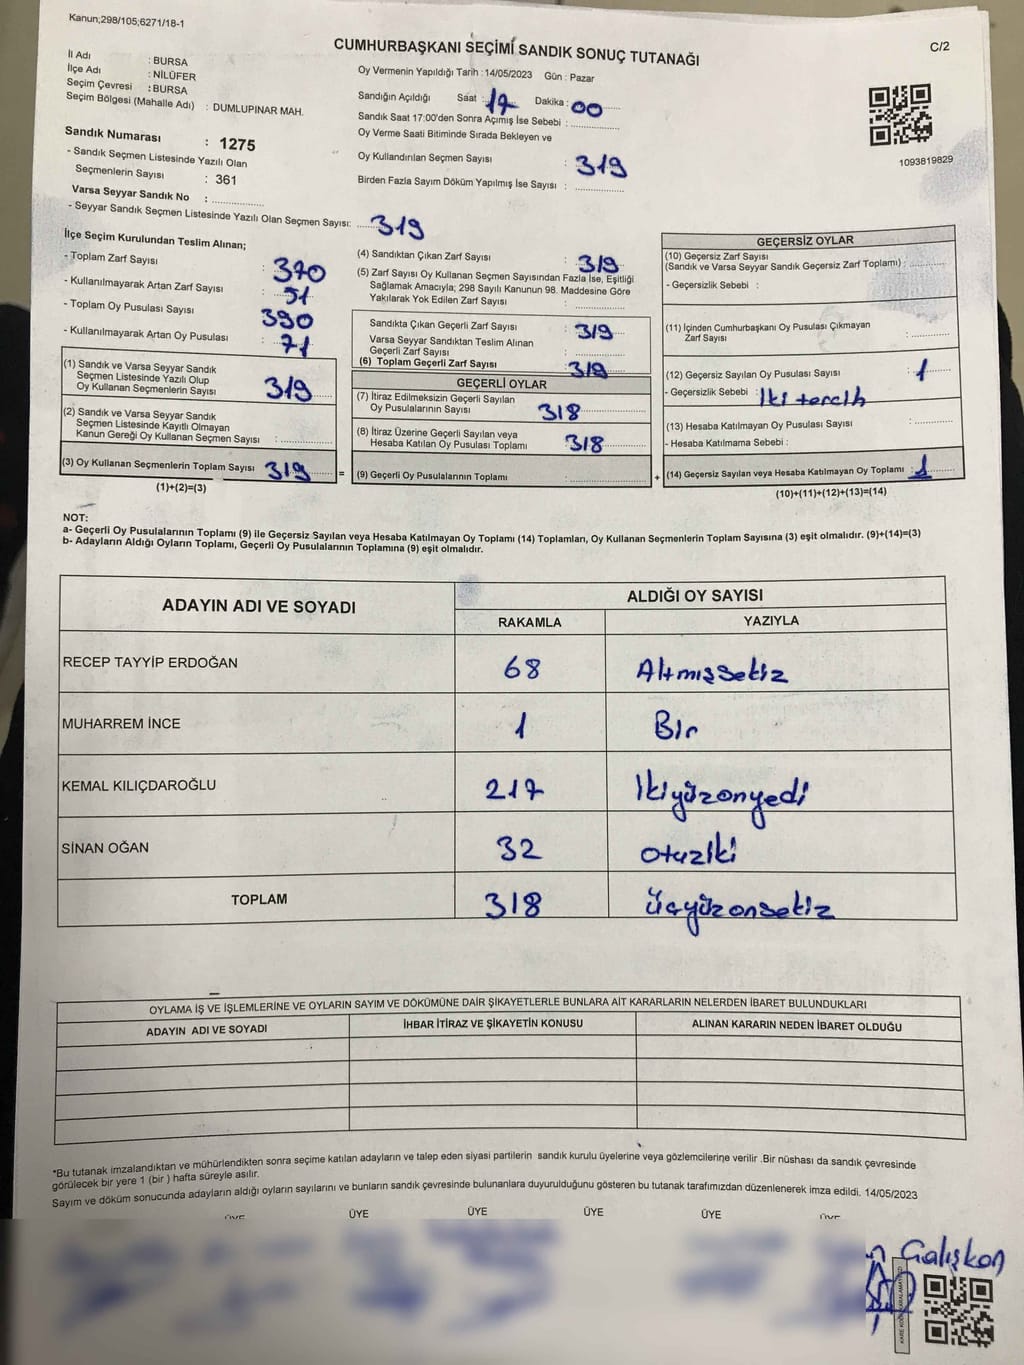 Kanun;298/105;6271/18-1
C/2
CUMHURBAŞKANI SEÇİMİ SANDIK SONUÇ TUTANAĞI
İl Adı : BURSA
İlçe Adı : NİLÜFER
Seçim Çevresi : BURSA
Seçim Bölgesi (Mahalle Adı) : DUMLUPINAR MAH.
Sandık Numarası : 1275
- Sandık Seçmen Listesinde Yazılı Olan
Seçmenlerin Sayısı : 361
Varsa Seyyar Sandık No : ..............
- Seyyar Sandık Seçmen Listesinde Yazılı Olan Seçmen Sayısı: 319
Oy Vermenin Yapıldığı Tarih : 14/05/2023 Gün : Pazar
Sandığın Açıldığı Saat : 17 Dakika : 00
Sandık Saat 17:00'den Sonra Açımış İse Sebebi : ..............
Oy Verme Saati Bitiminde Sırada Bekleyen ve
Oy Kullandırılan Seçmen Sayısı : 319
Birden Fazla Sayım Döküm Yapılmış İse Sayısı : ..............
1093819829
İlçe Seçim Kurulundan Teslim Alınan;
- Toplam Zarf Sayısı : 370
- Kullanılmayarak Artan Zarf Sayısı : 51
- Toplam Oy Pusulası Sayısı : 390
- Kullanılmayarak Artan Oy Pusulası : 71
(1) Sandık ve Varsa Seyyar Sandık
Seçmen Listesinde Yazılı Olup
Oy Kullanan Seçmenlerin Sayısı : 319
(2) Sandık ve Varsa Seyyar Sandık
Seçmen Listesinde Kayıtlı Olmayan
Kanun Gereği Oy Kullanan Seçmen Sayısı : ..............
(3) Oy Kullanan Seçmenlerin Toplam Sayısı : 319 =
(1)+(2)=(3)
(4) Sandıktan Çıkan Zarf Sayısı : 319
(5) Zarf Sayısı Oy Kullanan Seçmen Sayısından Fazla İse, Eşitliği
Sağlamak Amacıyla; 298 Sayılı Kanunun 98. Maddesine Göre
Yakılarak Yok Edilen Zarf Sayısı : ..............
Sandıkta Çıkan Geçerli Zarf Sayısı : 319
Varsa Seyyar Sandıktan Teslim Alınan
Geçerli Zarf Sayısı : ..............
(6) Toplam Geçerli Zarf Sayısı : 319
GEÇERLİ OYLAR
(7) İtiraz Edilmeksizin Geçerli Sayılan
Oy Pusulalarının Sayısı : 318
(8) İtiraz Üzerine Geçerli Sayılan veya
Hesaba Katılan Oy Pusulası Toplamı : 318
(9) Geçerli Oy Pusulalarının Toplamı : .............. +
GEÇERSİZ OYLAR
(10) Geçersiz Zarf Sayısı
(Sandık ve Varsa Seyyar Sandık Geçersiz Zarf Toplamı) : ..............
- Geçersizlik Sebebi :
(11) İçinden Cumhurbaşkanı Oy Pusulası Çıkmayan
Zarf Sayısı : ..............
(12) Geçersiz Sayılan Oy Pusulası Sayısı : 1
- Geçersizlik Sebebi : İki tercih
(13) Hesaba Katılmayan Oy Pusulası Sayısı : ..............
- Hesaba Katılmama Sebebi :
(14) Geçersiz Sayılan veya Hesaba Katılmayan Oy Toplamı : 1
(10)+(11)+(12)+(13)=(14)
NOT:
a- Geçerli Oy Pusulalarının Toplamı (9) ile Geçersiz Sayılan veya Hesaba Katılmayan Oy Toplamı (14) Toplamları, Oy Kullanan Seçmenlerin Toplam Sayısına (3) eşit olmalıdır. (9)+(14)=(3)
b- Adayların Aldığı Oyların Toplamı, Geçerli Oy Pusulalarının Toplamına (9) eşit olmalıdır.
ADAYIN ADI VE SOYADI ALDIĞI OY SAYISI
RAKAMLA YAZIYLA
RECEP TAYYİP ERDOĞAN 68 Altmışsekiz
MUHARREM İNCE 1 Bir
KEMAL KILIÇDAROĞLU 217 İkiyüzonyedi
SİNAN OĞAN 32 otuziki
TOPLAM 318 üçyüzonsekiz
OYLAMA İŞ VE İŞLEMLERİNE VE OYLARIN SAYIM VE DÖKÜMÜNE DAİR ŞİKAYETLERLE BUNLARA AİT KARARLARIN NELERDEN İBARET BULUNDUKLARI
ADAYIN ADI VE SOYADI İHBAR İTİRAZ VE ŞİKAYETİN KONUSU ALINAN KARARIN NEDEN İBARET OLDUĞU
*Bu tutanak imzalandıktan ve mühürlendikten sonra seçime katılan adayların ve talep eden siyasi partilerin sandık kurulu üyelerine veya gözlemcilerine verilir .Bir nüshası da sandık çevresinde
görülecek bir yere 1 (bir ) hafta süreyle asılır.
Sayım ve döküm sonucunda adayların aldığı oyların sayılarını ve bunların sandık çevresinde bulunanlara duyurulduğunu gösteren bu tutanak tarafımızdan düzenlenerek imza edildi. 14/05/2023
ÜYE ÜYE ÜYE ÜYE ÜYE ÜYE
Çalışkan